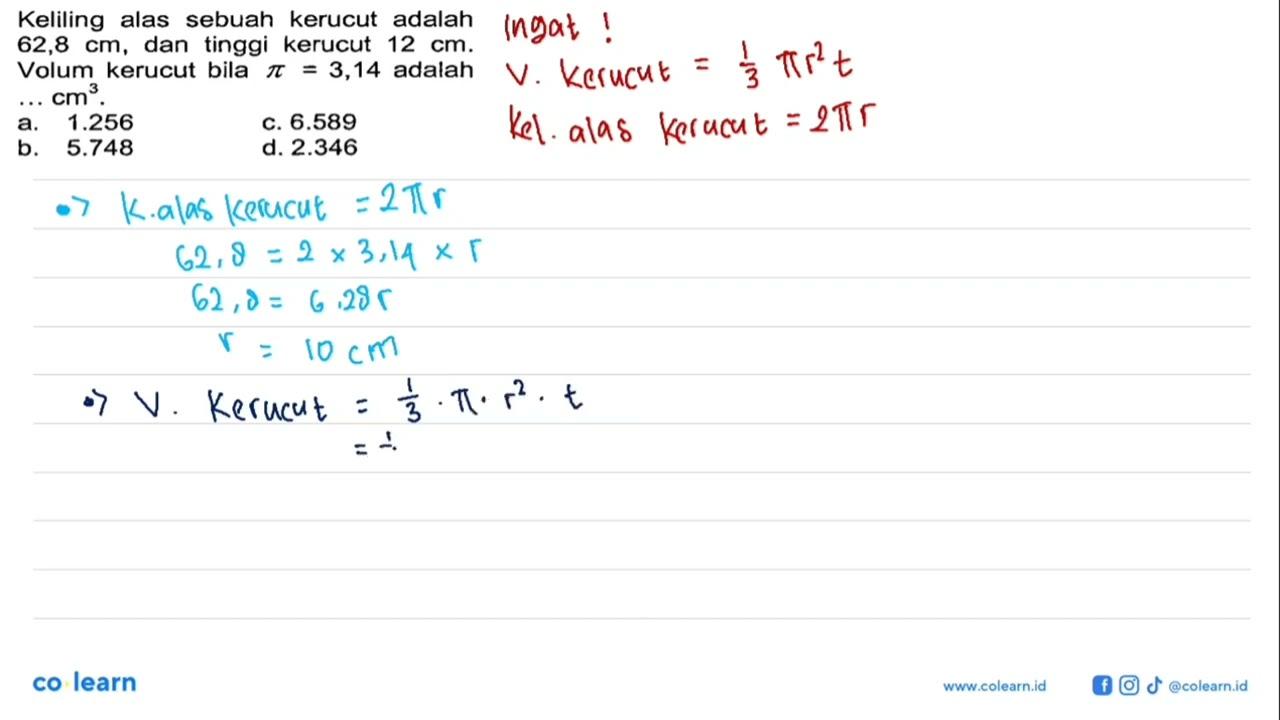 Keliling alas sebuah kerucut adalah
62,8 cm, dan tinggi kerucut 12 cm.
Volum kerucut bila π = 3,14 adalah
... cm³.
a. 1.256 c. 6.589
b. 5.748 d. 2.346
Ingat !
V. Kerucut = 1/3 πr²t
Kel. alas kerucut = 2πr
•> K. alas kerucut = 2πr
62,8 = 2 × 3,14 × r
62,8 = 6.28r
r = 10 cm
•> V. Kerucut = 1/3 · π · r² · t
= 1/
co learn
www.colearn.id
@colearn.id